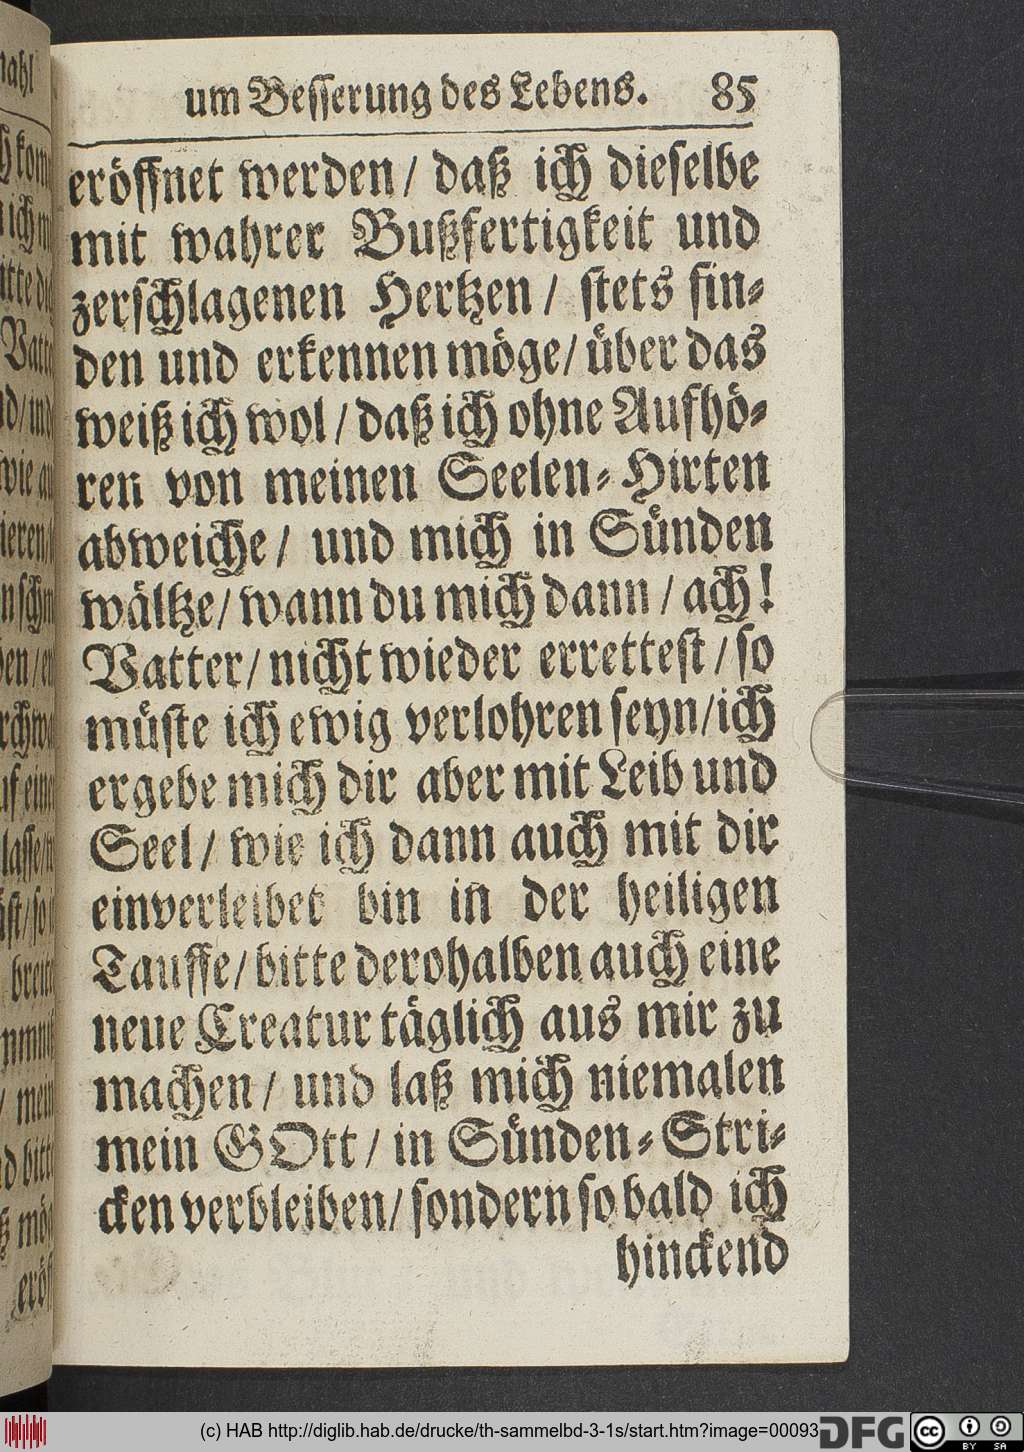 um Besserung des Lebens. 85
eröffnet werden / daß ich dieselbe
mit wahrer Bußfertigkeit und
zerschlagenen Hertzen / stets fin-
den und erkennen möge / über das
weiß ich wol / daß ich ohne Aufhö-
ren von meinen Seelen-Hirten
abweiche / und mich in Sünden
wältze / wann du mich dann / ach!
Vatter / nicht wieder errettest / so
müste ich ewig verlohren seyn / ich
ergebe mich dir aber mit Leib und
Seel / wie ich dann auch mit dir
einverleibet bin in der heiligen
Tauffe / bitte derohalben auch eine
neue Creatur täglich aus mir zu
machen / und laß mich niemalen
mein GOtt / in Sünden-Stri-
cken verbleiben / sondern so bald ich
hinckend
(c) HAB http://diglib.hab.de/drucke/th-sammelbd-3-1s/start.htm?image=00093
DFG
cc
BY SA